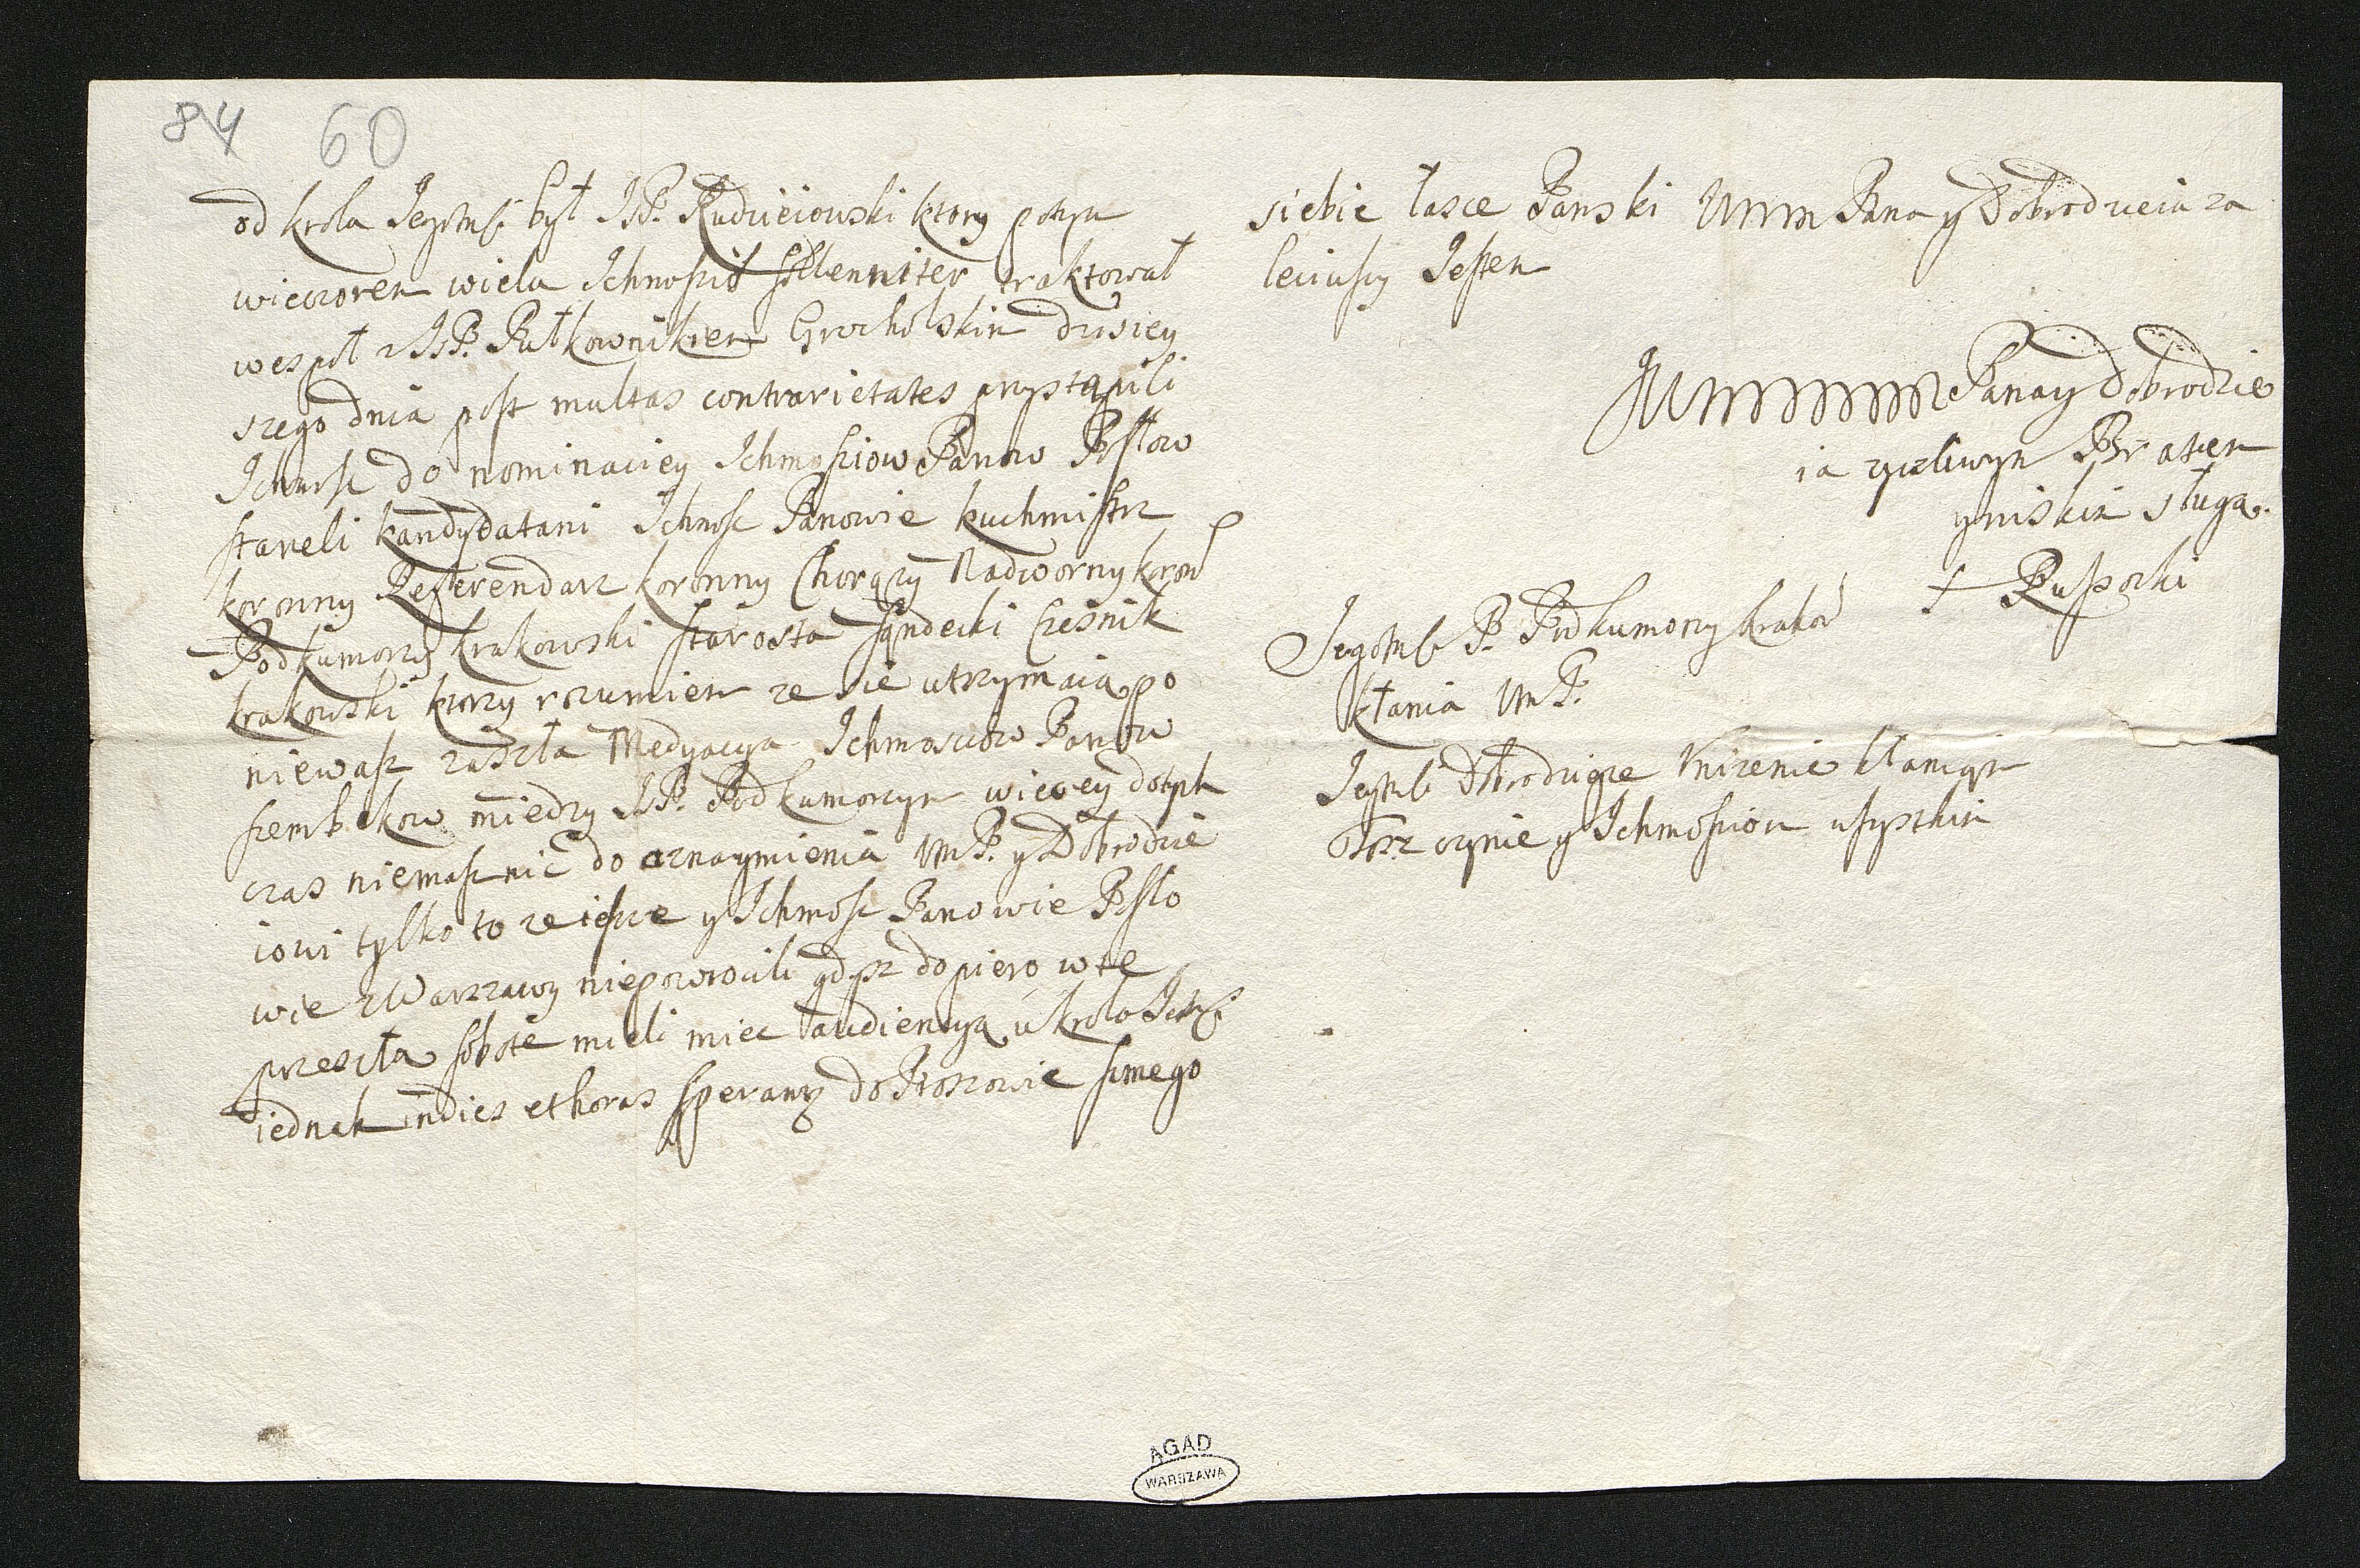 84 60
od krola Jegomsci był JP. Rudzieiowski ktory potym
wieczorem wielu Ichmosciow sollenniter traktował
wespoł z JP. Pułkownikiem Grocholskim dzisiey
szego dnia post multas contrarietates przystąpili
Ichmsc do nominaciey Ichmosciow Panow Posłow
staneli kandydatami Ichmosc Panowie kuchmistrz
koronny Referendarz koronny Chorązy Nadworny koron
Podkumorzy krakowski starosta sąndecki Czesnik
krakowski ktorzy rozumiem ze sie utrzymaią po
niewasz zaszła Medyacya Ichmosciow Panow
szembekow miedzy JP. Podkumorzym wiecey dotych
czas niemasz nic do oznaymienia WMP. y Dobrodzie
iowi tylko to ze ieszcze y Ichmosc Panowie Posło
wie z Warszawy niepowrocili gdysz dopiero w te
przeszła sobote mieli miec audiencyą u krola Jegomsci
iednak indies et horas speramy do Proszowic samego
siebie łasce Panski WMM Pana y Dobrodzieia za
leciwszy Jestem
WMMM Pana y Dobrodzie
ia zyczliwym Bratem
y niskim sługa.
Ruszocki
Jegomsc P. Podkumorzy krakow
kłania WMP.
Jegomsc Dobrodzieyce Unizenie kłaniam
tosz czynie y Ichmosciom wszystkim
AGAD
WARSZAWA